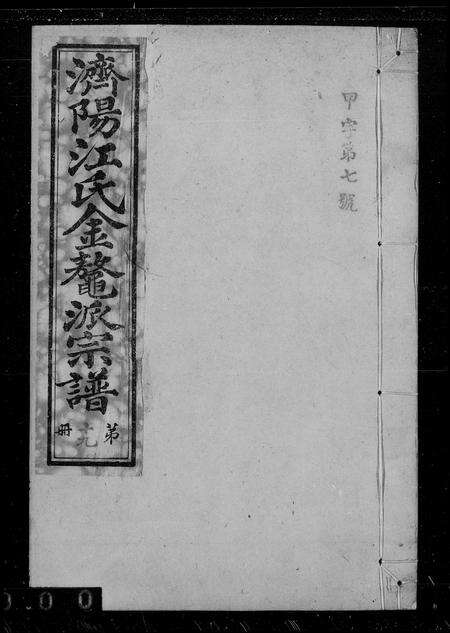 甲字第七號
濟陽江氏金鼇派宗譜
第十九冊
0 0